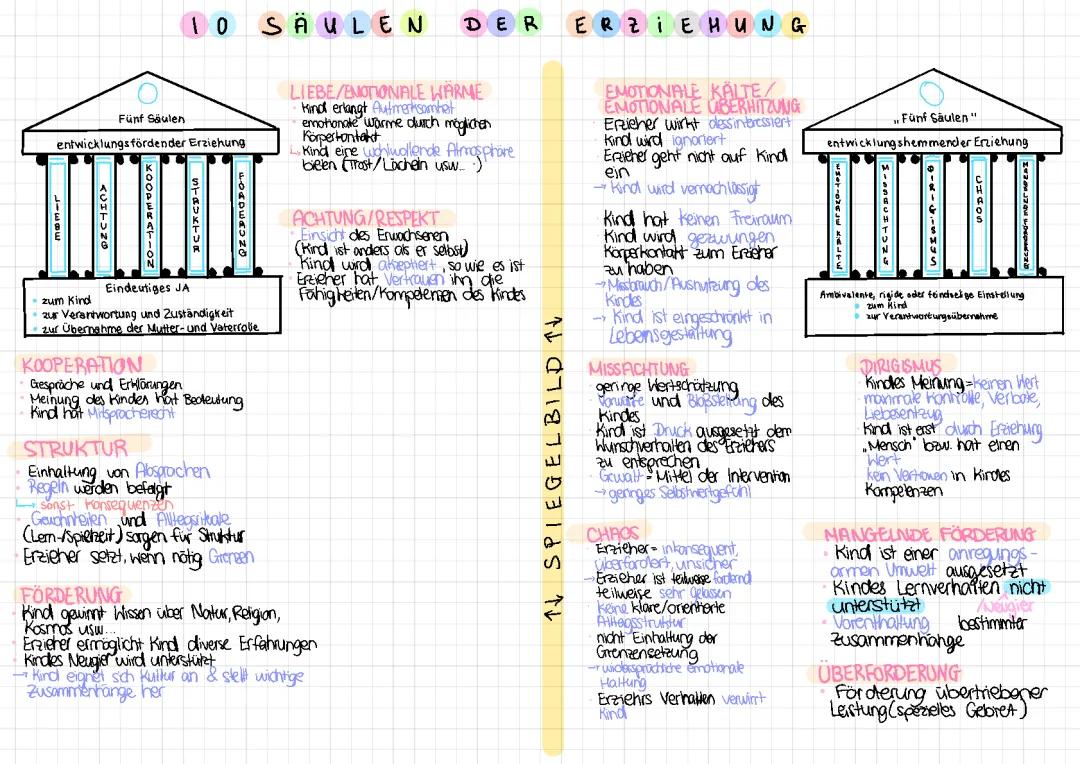 10 SÄULEN DER ERZIEHUNG
Fünf Säulen
entwicklungsfördender Erziehung
LIEBE
ACHTUNG
KOOPERATION
STRUKTUR
FÖRDERUNG
Eindeutiges JA
• zum Kind
• zur Verantwortung und Zuständigkeit
• zur Übernahme der Mutter- und Vaterrolle
LIEBE/EMOTIONALE WÄRME
· Kind erlangt Aufmerksamkeit
· emotionale Wärme durch möglichen
Körperkontakt
↳ Kind eine wohlwollende Atmosphäre
bieten (Trost/Lächeln usw...)
ACHTUNG/RESPEKT
· Einsicht des Erwachsenen
(Kind ist anders als er selbst)
· Kind wird akzeptiert, so wie es ist
· Erzieher hat Vertrauen in die
Fähigkeiten/Kompetenzen des Kindes
KOOPERATION
· Gespräche und Erklärungen
· Meinung des Kindes hat Bedeutung
· Kind hat Mitspracherecht
STRUKTUR
· Einhaltung von Absprachen
· Regeln werden befolgt
↳ sonst Konsequenzen
· Gewohnheiten und Alltagsrituale
(Lern-/Spielzeit) sorgen für Struktur
· Erzieher setzt, wenn nötig Grenzen
FÖRDERUNG
· Kind gewinnt Wissen über Natur, Religion,
Kosmos usw...
· Erzieher ermöglicht Kind diverse Erfahrungen
· Kindes Neugier wird unterstützt
→ Kind eignet sich Kultur an & stellt wichtige
Zusammenhänge her
↑↓ SPIEGELBILD ↑↓
EMOTIONALE KÄLTE/
EMOTIONALE ÜBERHITZUNG
· Erzieher wirkt dessinteressiert
· Kind wird ignoriert
· Erzieher geht nicht auf Kind
ein
→ Kind wird vernachlässigt
· Kind hat keinen Freiraum
· Kind wird gezwungen
Körperkontakt zum Erzieher
zu haben
→ Missbrauch/Ausnutzung des
Kindes
→ Kind ist eingeschränkt in
Lebensgestaltung
„Fünf Säulen"
entwicklungshemmender Erziehung
EMOTIONALE KÄLTE
MISSACHTUNG
DIRIGISMUS
CHAOS
MANGELNDE FÖRDERUNG
Ambivalente, rigide oder feindselige Einstellung
• zum Kind
• zur Verantwortungsübernahme
MISSACHTUNG
· geringe Wertschätzung
· Vorwürfe und Bloßstellung des
Kindes
· Kind ist Druck ausgesetzt dem
Wunschverhalten des Erziehers
zu entsprechen
· Gewalt = Mittel der Intervention
→ geringes Selbstwertgefühl
DIRIGISMUS
· Kindes Meinung = keinen Wert
· maximale Kontrolle, Verbote,
Liebesentzug
· Kind ist erst durch Erziehung
„Mensch" bzw. hat einen
Wert
· kein Vertrauen in Kindes
Kompetenzen
CHAOS
· Erzieher = inkonsequent,
überfordert, unsicher
→ Erzieher ist teilweise fordernd
teilweise sehr gelassen
· keine klare/orientierte
Alltagsstruktur
· nicht Einhaltung der
Grenzensetzung
→ widersprüchliche emotionale
Haltung
· Erziehrs Verhalten verwirrt
Kind
MANGELNDE FÖRDERUNG
· Kind ist einer anregungs-
armen Umwelt ausgesetzt
· Kindes Lernverhalten nicht
unterstützt /Neugier
· Vorenthaltung bestimmter
Zusammenhänge
ÜBERFORDERUNG
· Förderung übertriebener
Leistung (spezielles Gebiet)